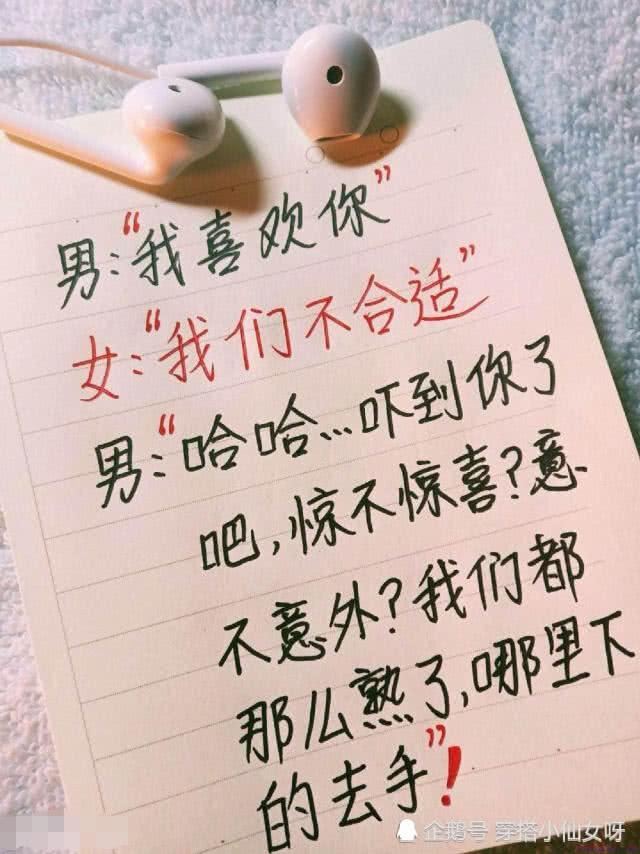 男:“我喜欢你”
女:“我们不合适”
男:“哈哈…吓到你了
吧,惊不惊喜?意
不意外?我们都
那么熟了,哪里下
的去手”!
企鹅号 穿搭小仙女呀